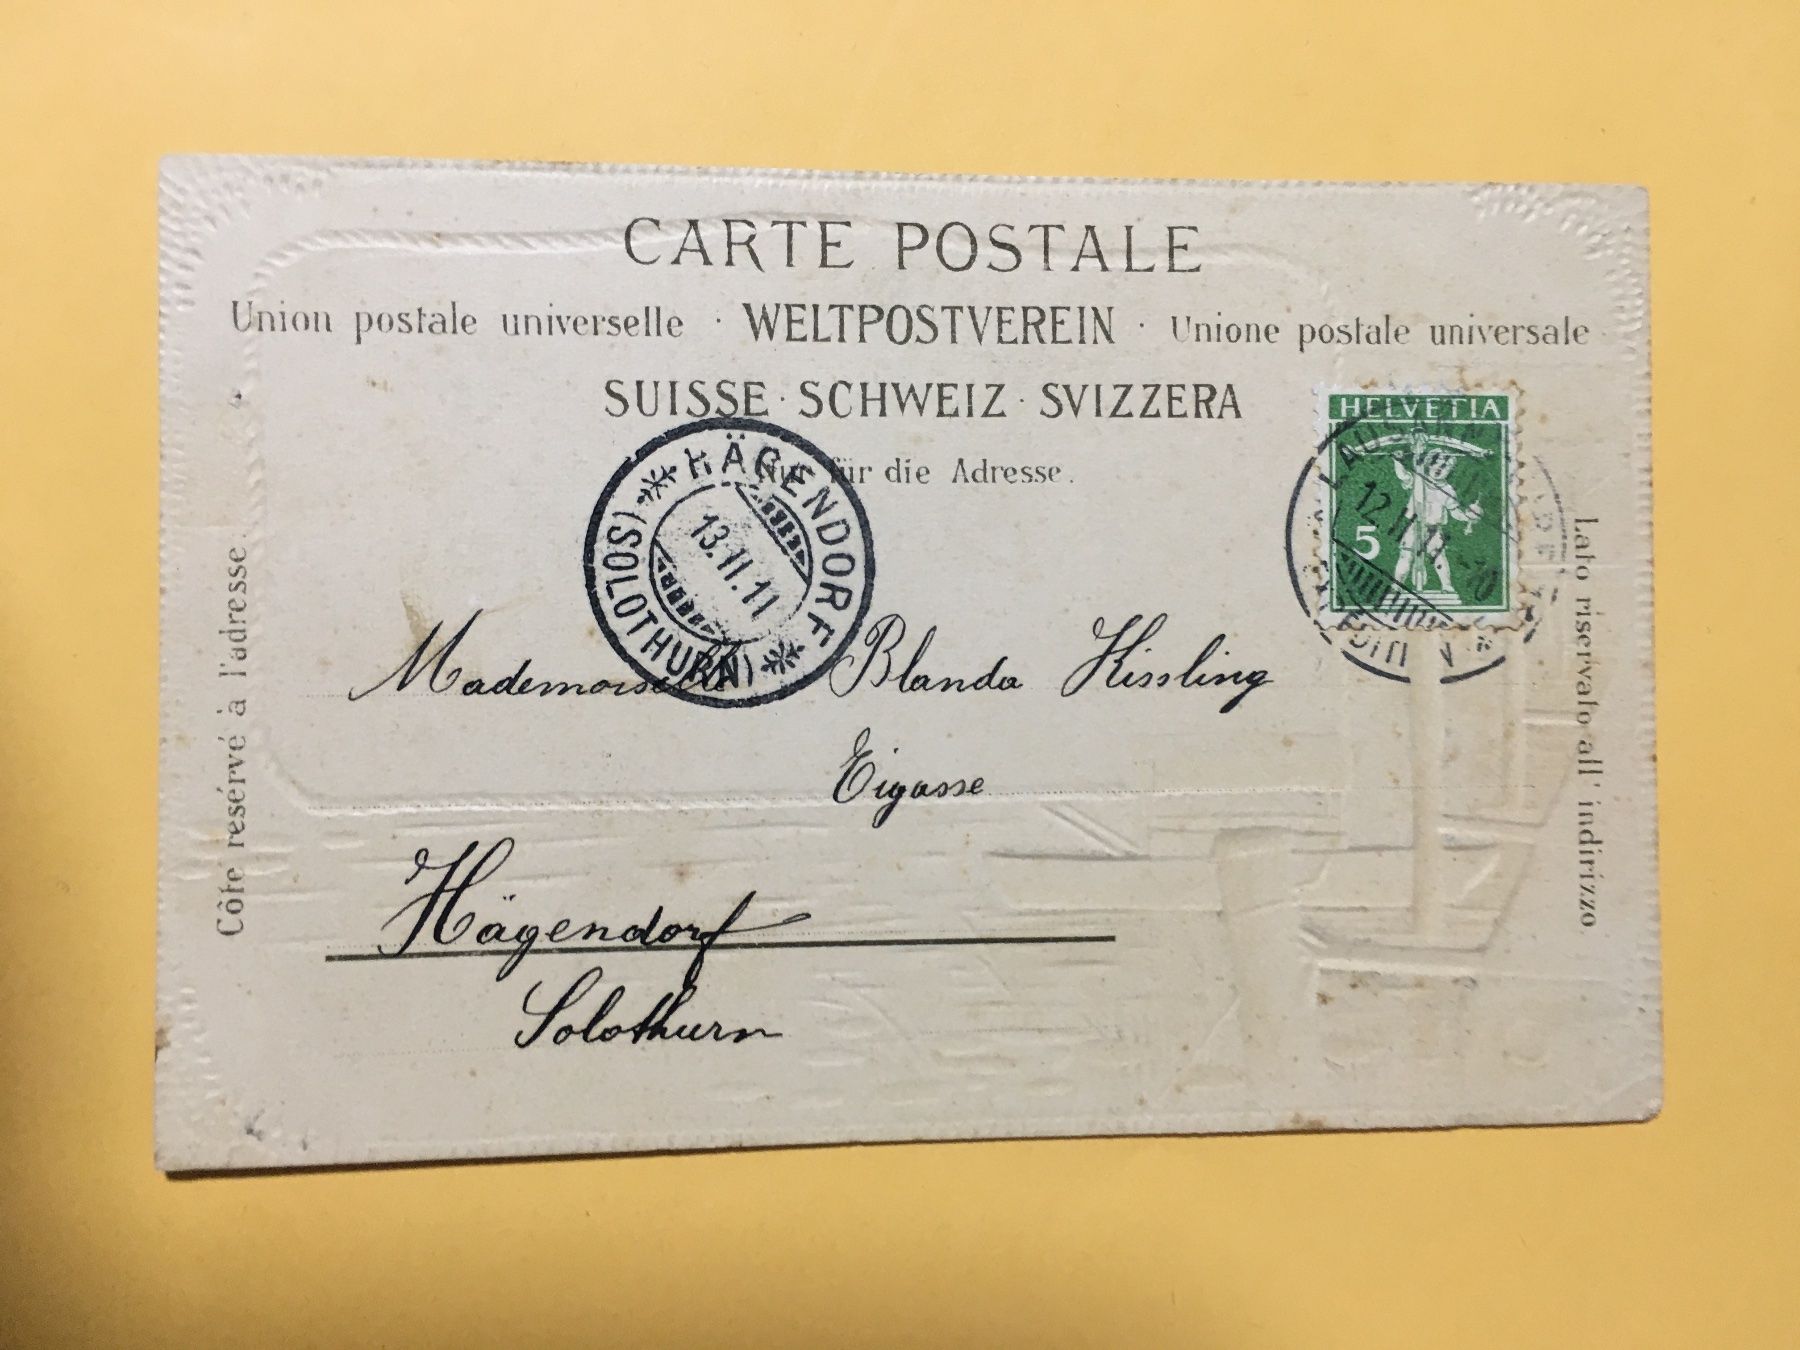 CARTE POSTALE
Union postale universelle · WELTPOSTVEREIN · Unione postale universale
SUISSE · SCHWEIZ · SVIZZERA
Nur für die Adresse.
HELVETIA
5
12.II.11
HÄGENDORF
13.II.11
(SOLOTHURN)
Côté resérvé à l'adresse.
Lato riservato all' indirizzo.
Mademoiselle Blanda Kissling
Eigasse
Hägendorf
Solothurn